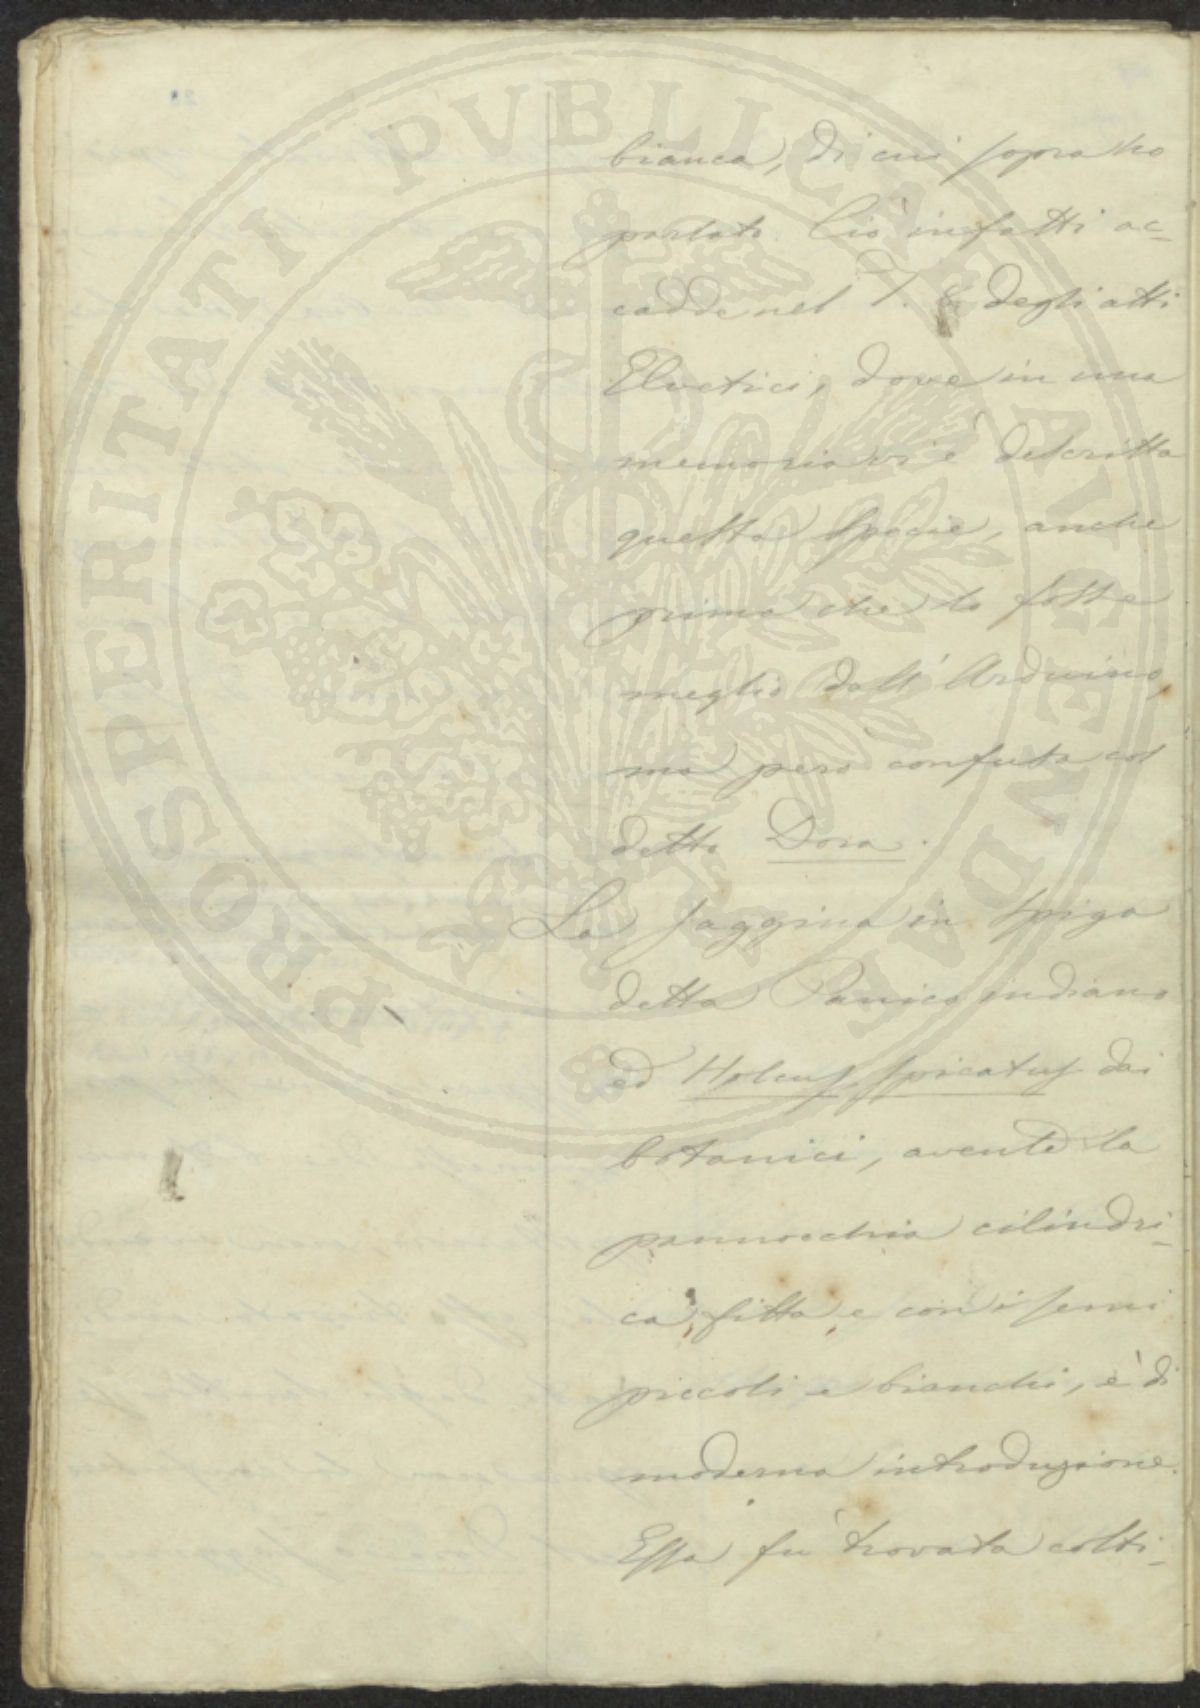 bianca, di cui sopra ho
parlato. Ciò infatti ac-
cadde nel T. 8 degli atti
Elvetici, dove in una
memoria vi è descritta
questa specie, anche
prima che lo fosse
meglio dall' Arduino,
ma però confusa col
detto Dora.
La saggina in spiga
detta Panico indiano
ed Holcus spicatus dai
botanici, avente la
pannocchia cilindri-
ca, fitta, e con i semi
piccoli e bianchi, è di
moderna introduzione.
Essa fu trovata colti-
PROSPERITATI PVBLICAE AVGENDAE